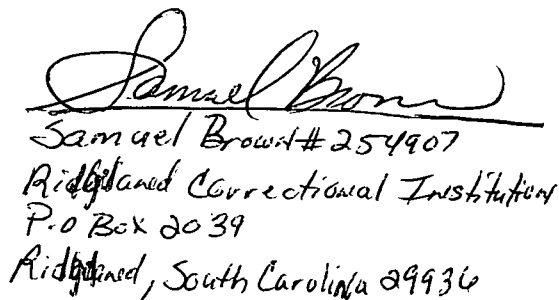 Samuel Brown
Samuel Brown # 254907
Ridgeland Correctional Institution
P.O Box 2039
Ridgeland, South Carolina 29936